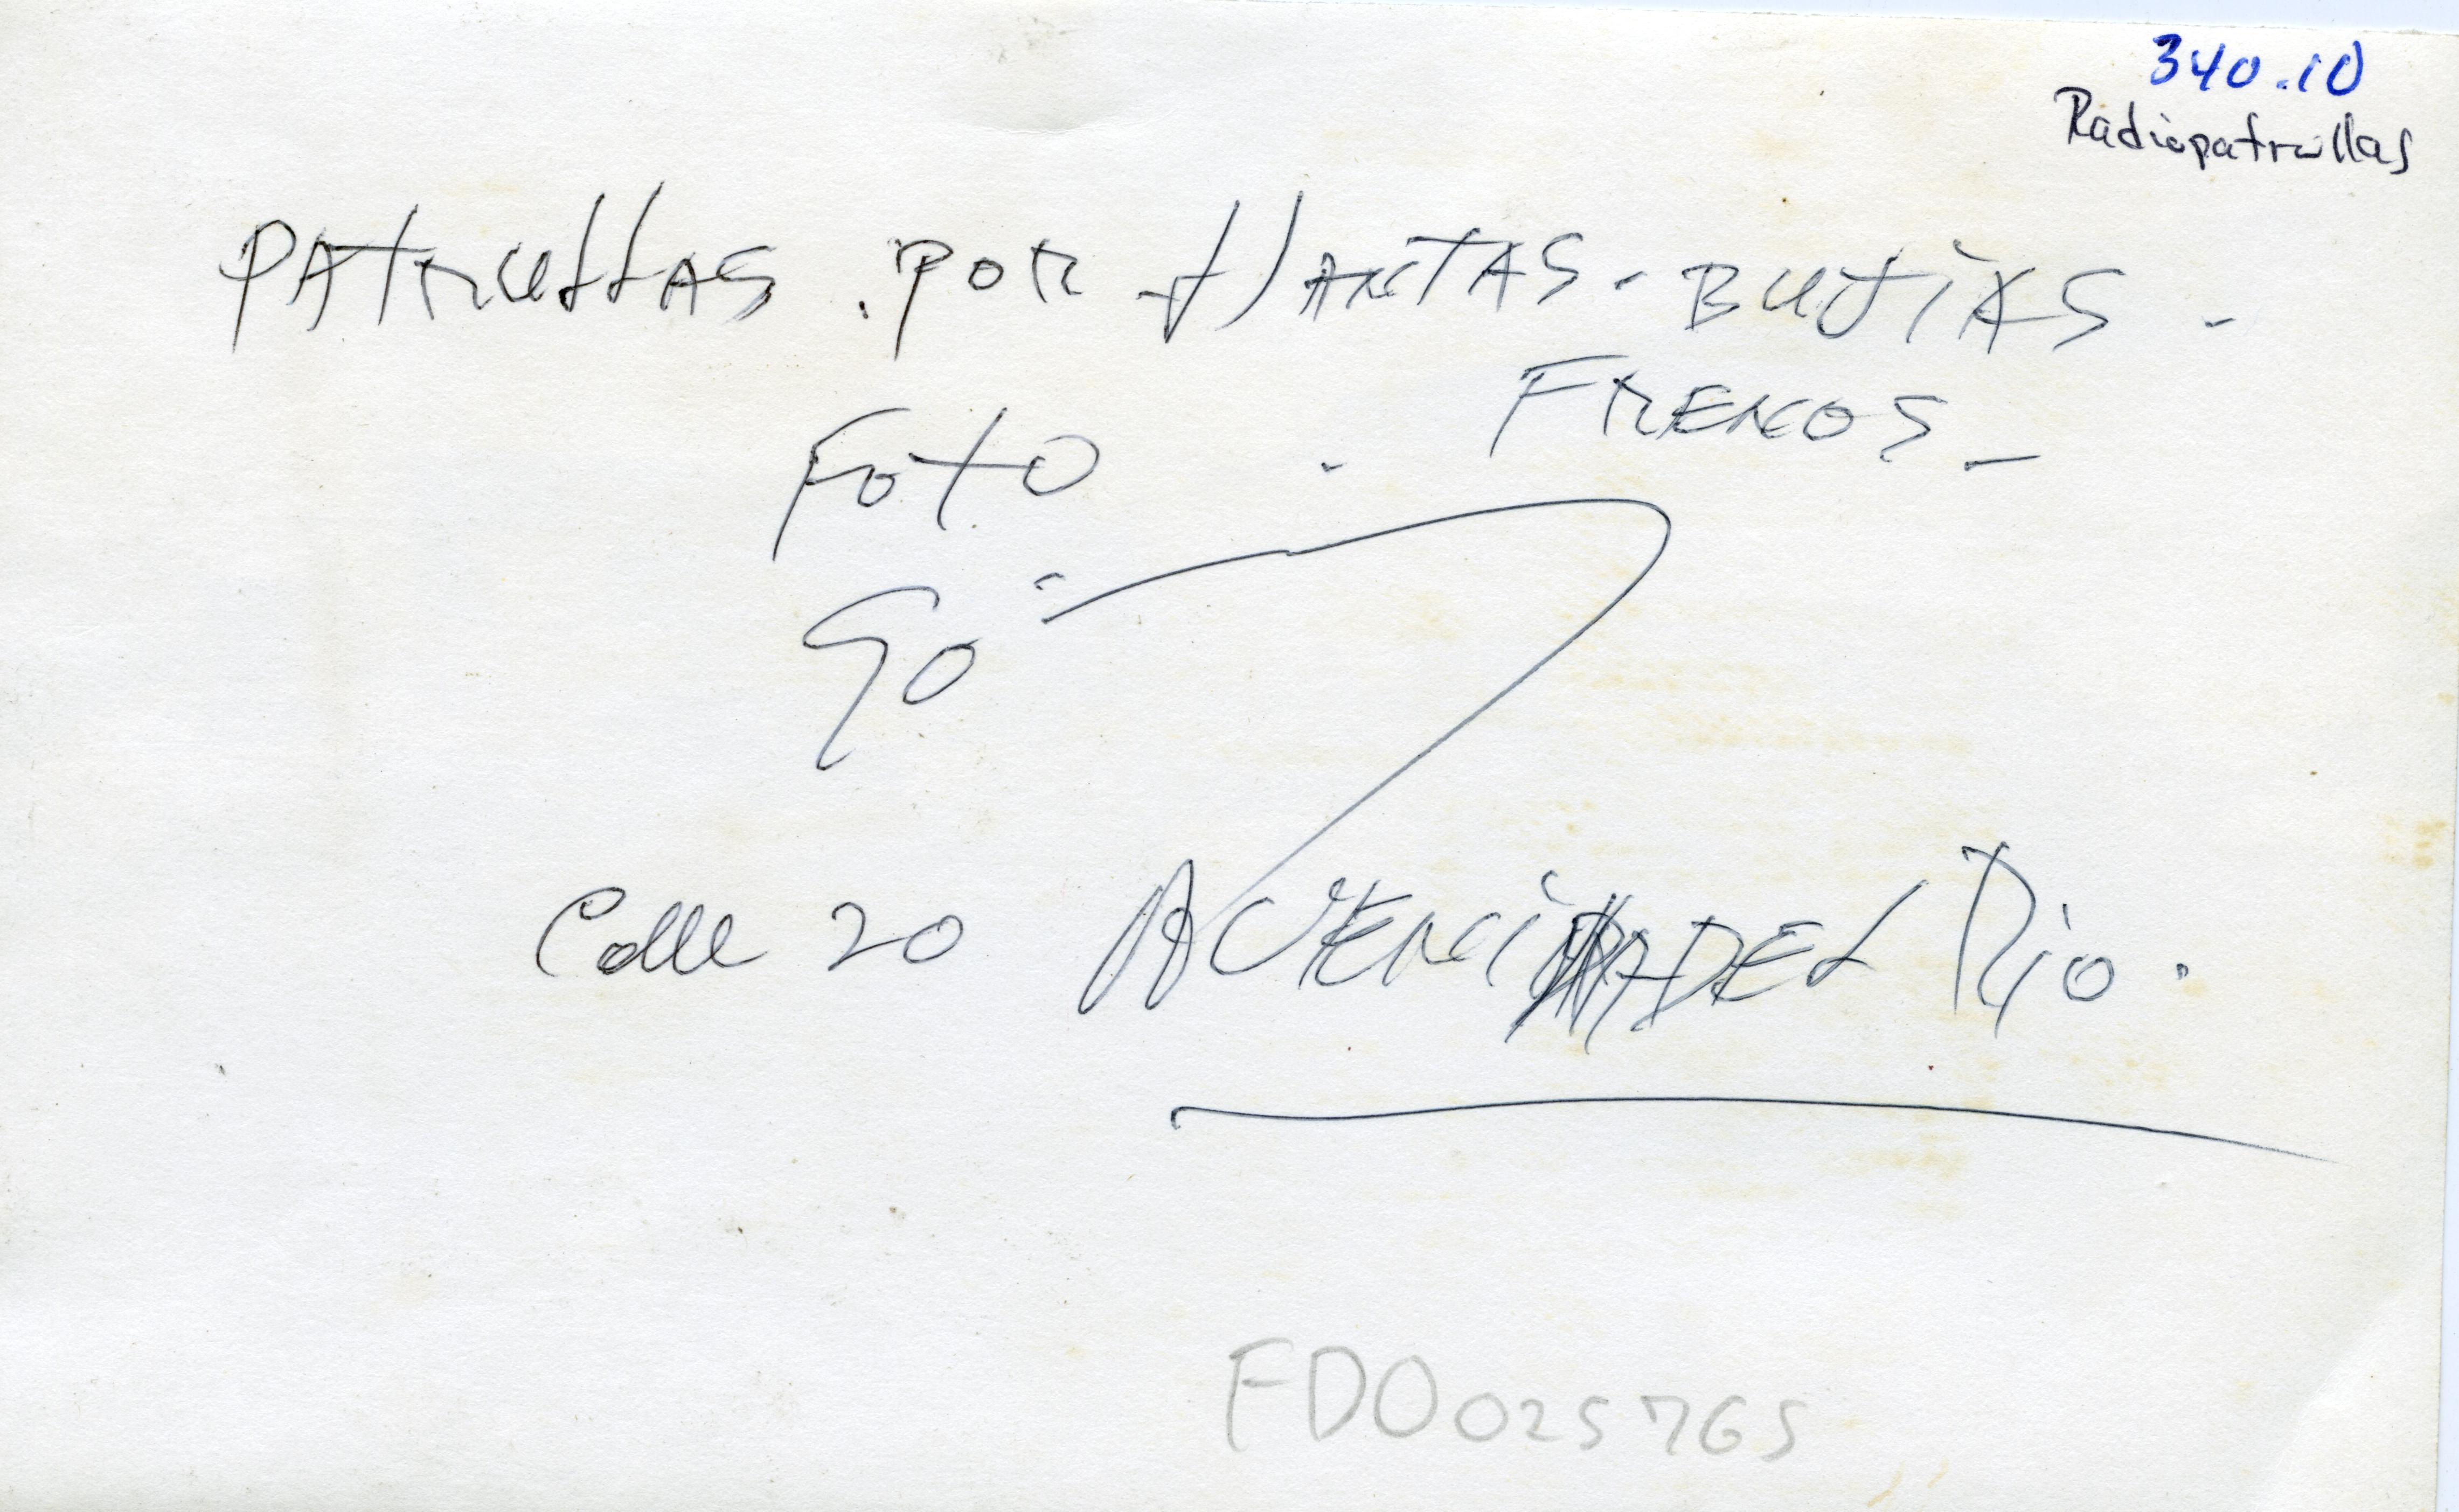 340.10
Radiopatrullas
PATRULLAS. POR LLANTAS. BUJIAS.
FRENOS-
FOTO
Go
Calle 20 AVENIDA DEL Rio.
FDO025765